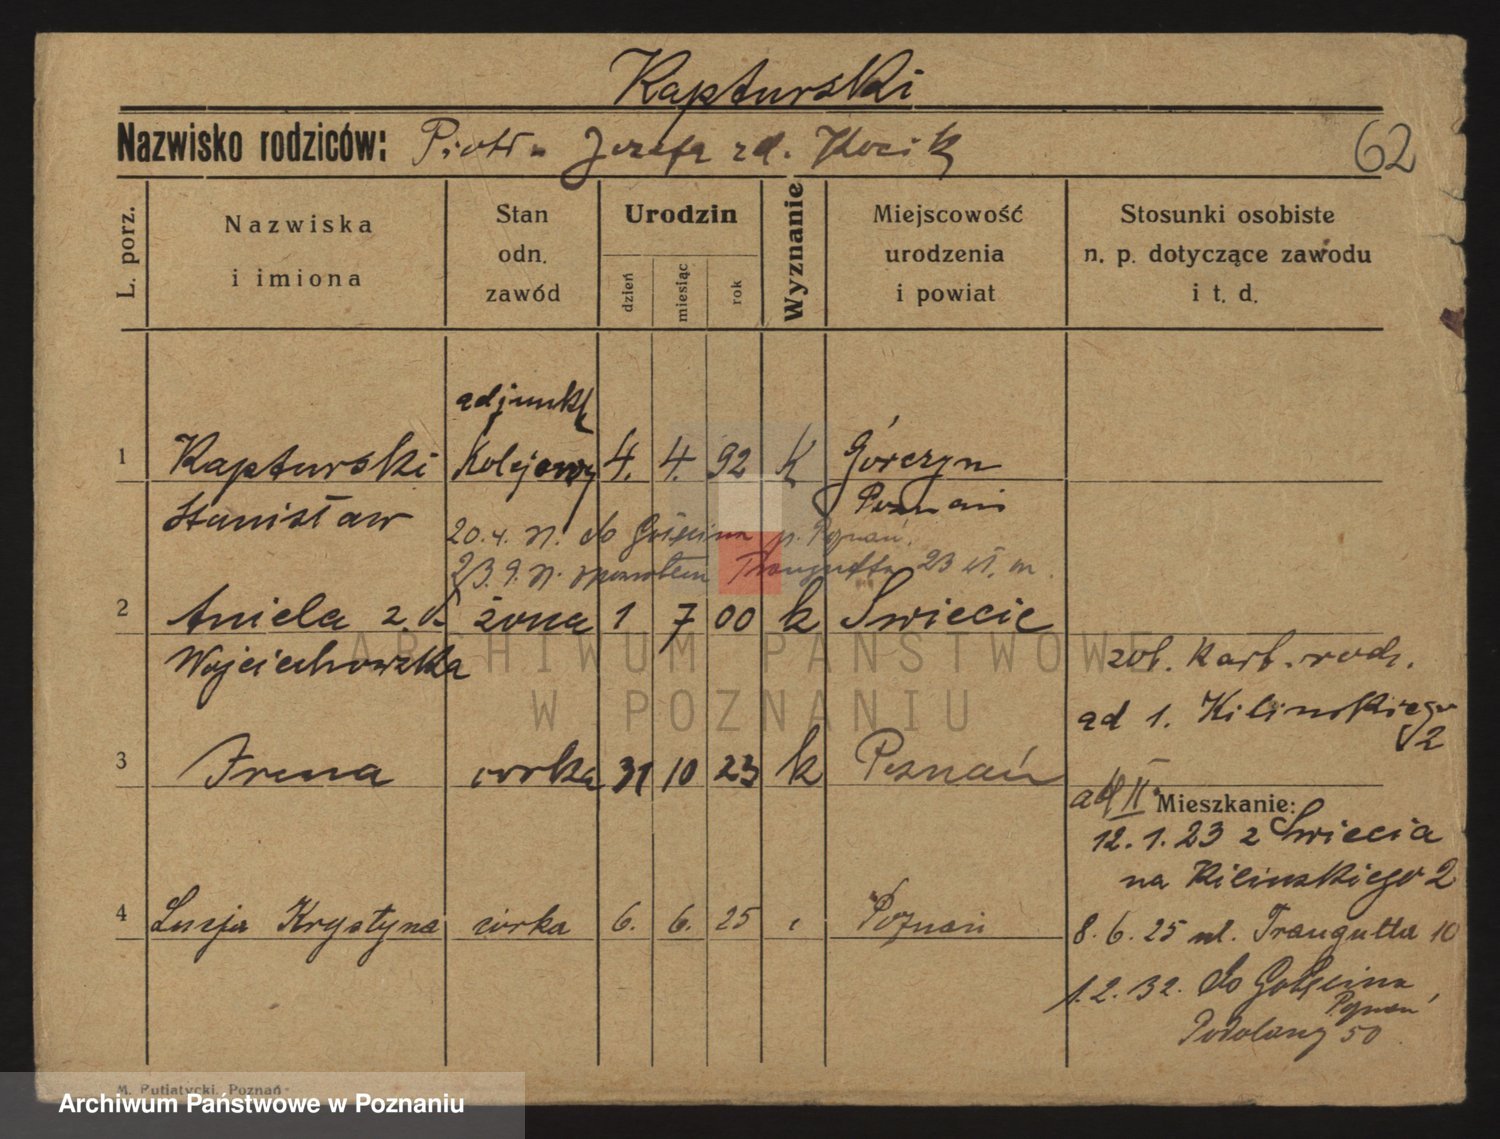 Kapturski
Nazwisko rodziców: Piotr - Józefa zd. Kocik
62
L. porz.
Nazwiska
i imiona
Stan
odn.
zawód
Urodzin
dzień
miesiąc
rok
Wyznanie
Miejscowość
urodzenia
i powiat
Stosunki osobiste
n. p. dotyczące zawodu
i t. d.
adjunkt
1 Kapturski kolejowy 4. 4. 92 K Górczyn
Stanisław Poznań
20.4. do p. Poznań.
23.9. z powrotem Traugutta 23 m.
2 Aniela z d. żona 1 7 00 k Swiecie
Wojciechowska
zob. kart. rodz.
ad 1. Kilinskiego
2
3 Irena corka 31 10 23 k Poznań
ad II Mieszkanie:
12. 1. 23 z Swiecia
na Kilinskiego 2
4 Lucja Krystyna córka 6. 6. 25 Poznań
8. 6. 25 ul. Traugutta 10
1. 2. 32. do Golęcina
Poznań
Podolany 50
ARCHIWUM PAŃSTWOWE
W POZNANIU
M. Putiatycki, Poznań
Archiwum Państwowe w Poznaniu